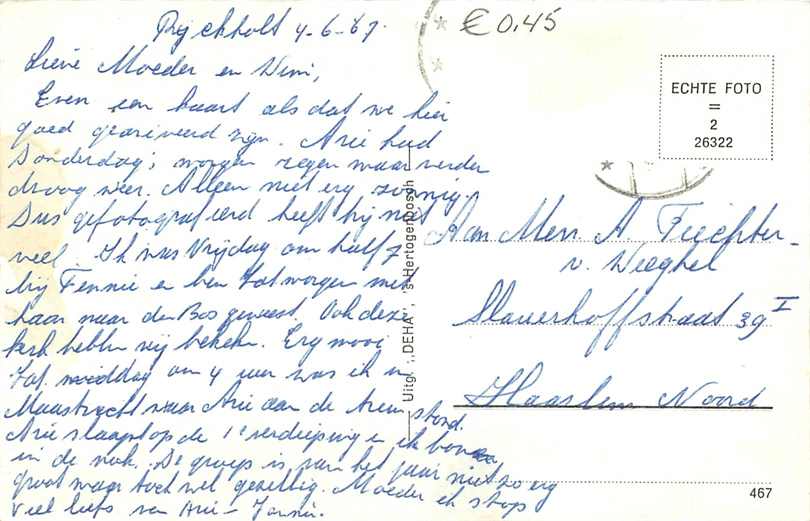 Rijckholt 4-6-87.
Lieve Moeder en Wim,
Even een kaart als dat we hier
goed gearriveerd zijn. Arie had
Donderdag, morgen regen maar verder
droog weer. Alleen niet erg zonnig.
Dus gefotografeerd heeft hij niet
veel. Ik was Vrijdag om half 7
bij Fennie en ben Zat morgen met
haar naar den Bos geweest. Ook deze
kerk hebben wij bekeken. Erg mooi
Zat. middag om 4 uur was ik in
Maastricht waar Arie aan de trein stond.
Arie slaapt op de 1e verdieping en ik boven
in de nok. De groep is van het jaar niet zo erg
groot maar toch wel gezellig. Moeder ik stop
Veel liefs van Arie - Jannie.
€ 0,45
ECHTE FOTO
=
2
26322
Aan Mevr. A. Fiechter-
v. Weeghel
Slauerhoffstraat 39 I
Haarlem Noord
Uitg. „DEHA", 's-Hertogenbosch
467